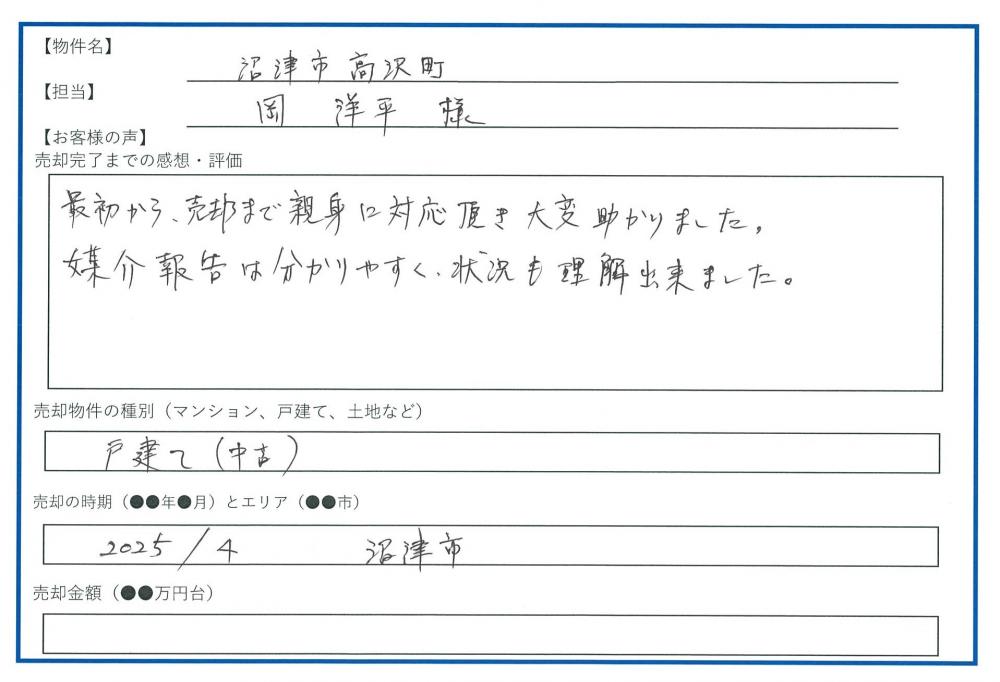 【物件名】
沼津市高沢町
【担当】
岡 洋平 様
【お客様の声】
売却完了までの感想・評価
最初から、売却まで親身に対応頂き大変助かりました。
媒介報告は分かりやすく、状況も理解出来ました。
売却物件の種別（マンション、戸建て、土地など）
戸建て（中古）
売却の時期（●●年●月）とエリア（●●市）
2025/4 沼津市
売却金額（●●万円台）